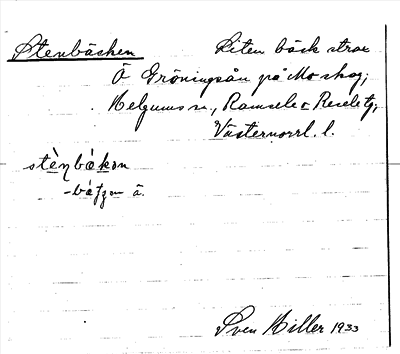 Stenbäcken Liten bäck strax
Ö Gröningsån på Mo skog;
Helgums sn., Ramsele o. Resele tg,
Västernorrl. l.
stènbäkən
-bäƫʃən ä.
Sven Hiller 1933